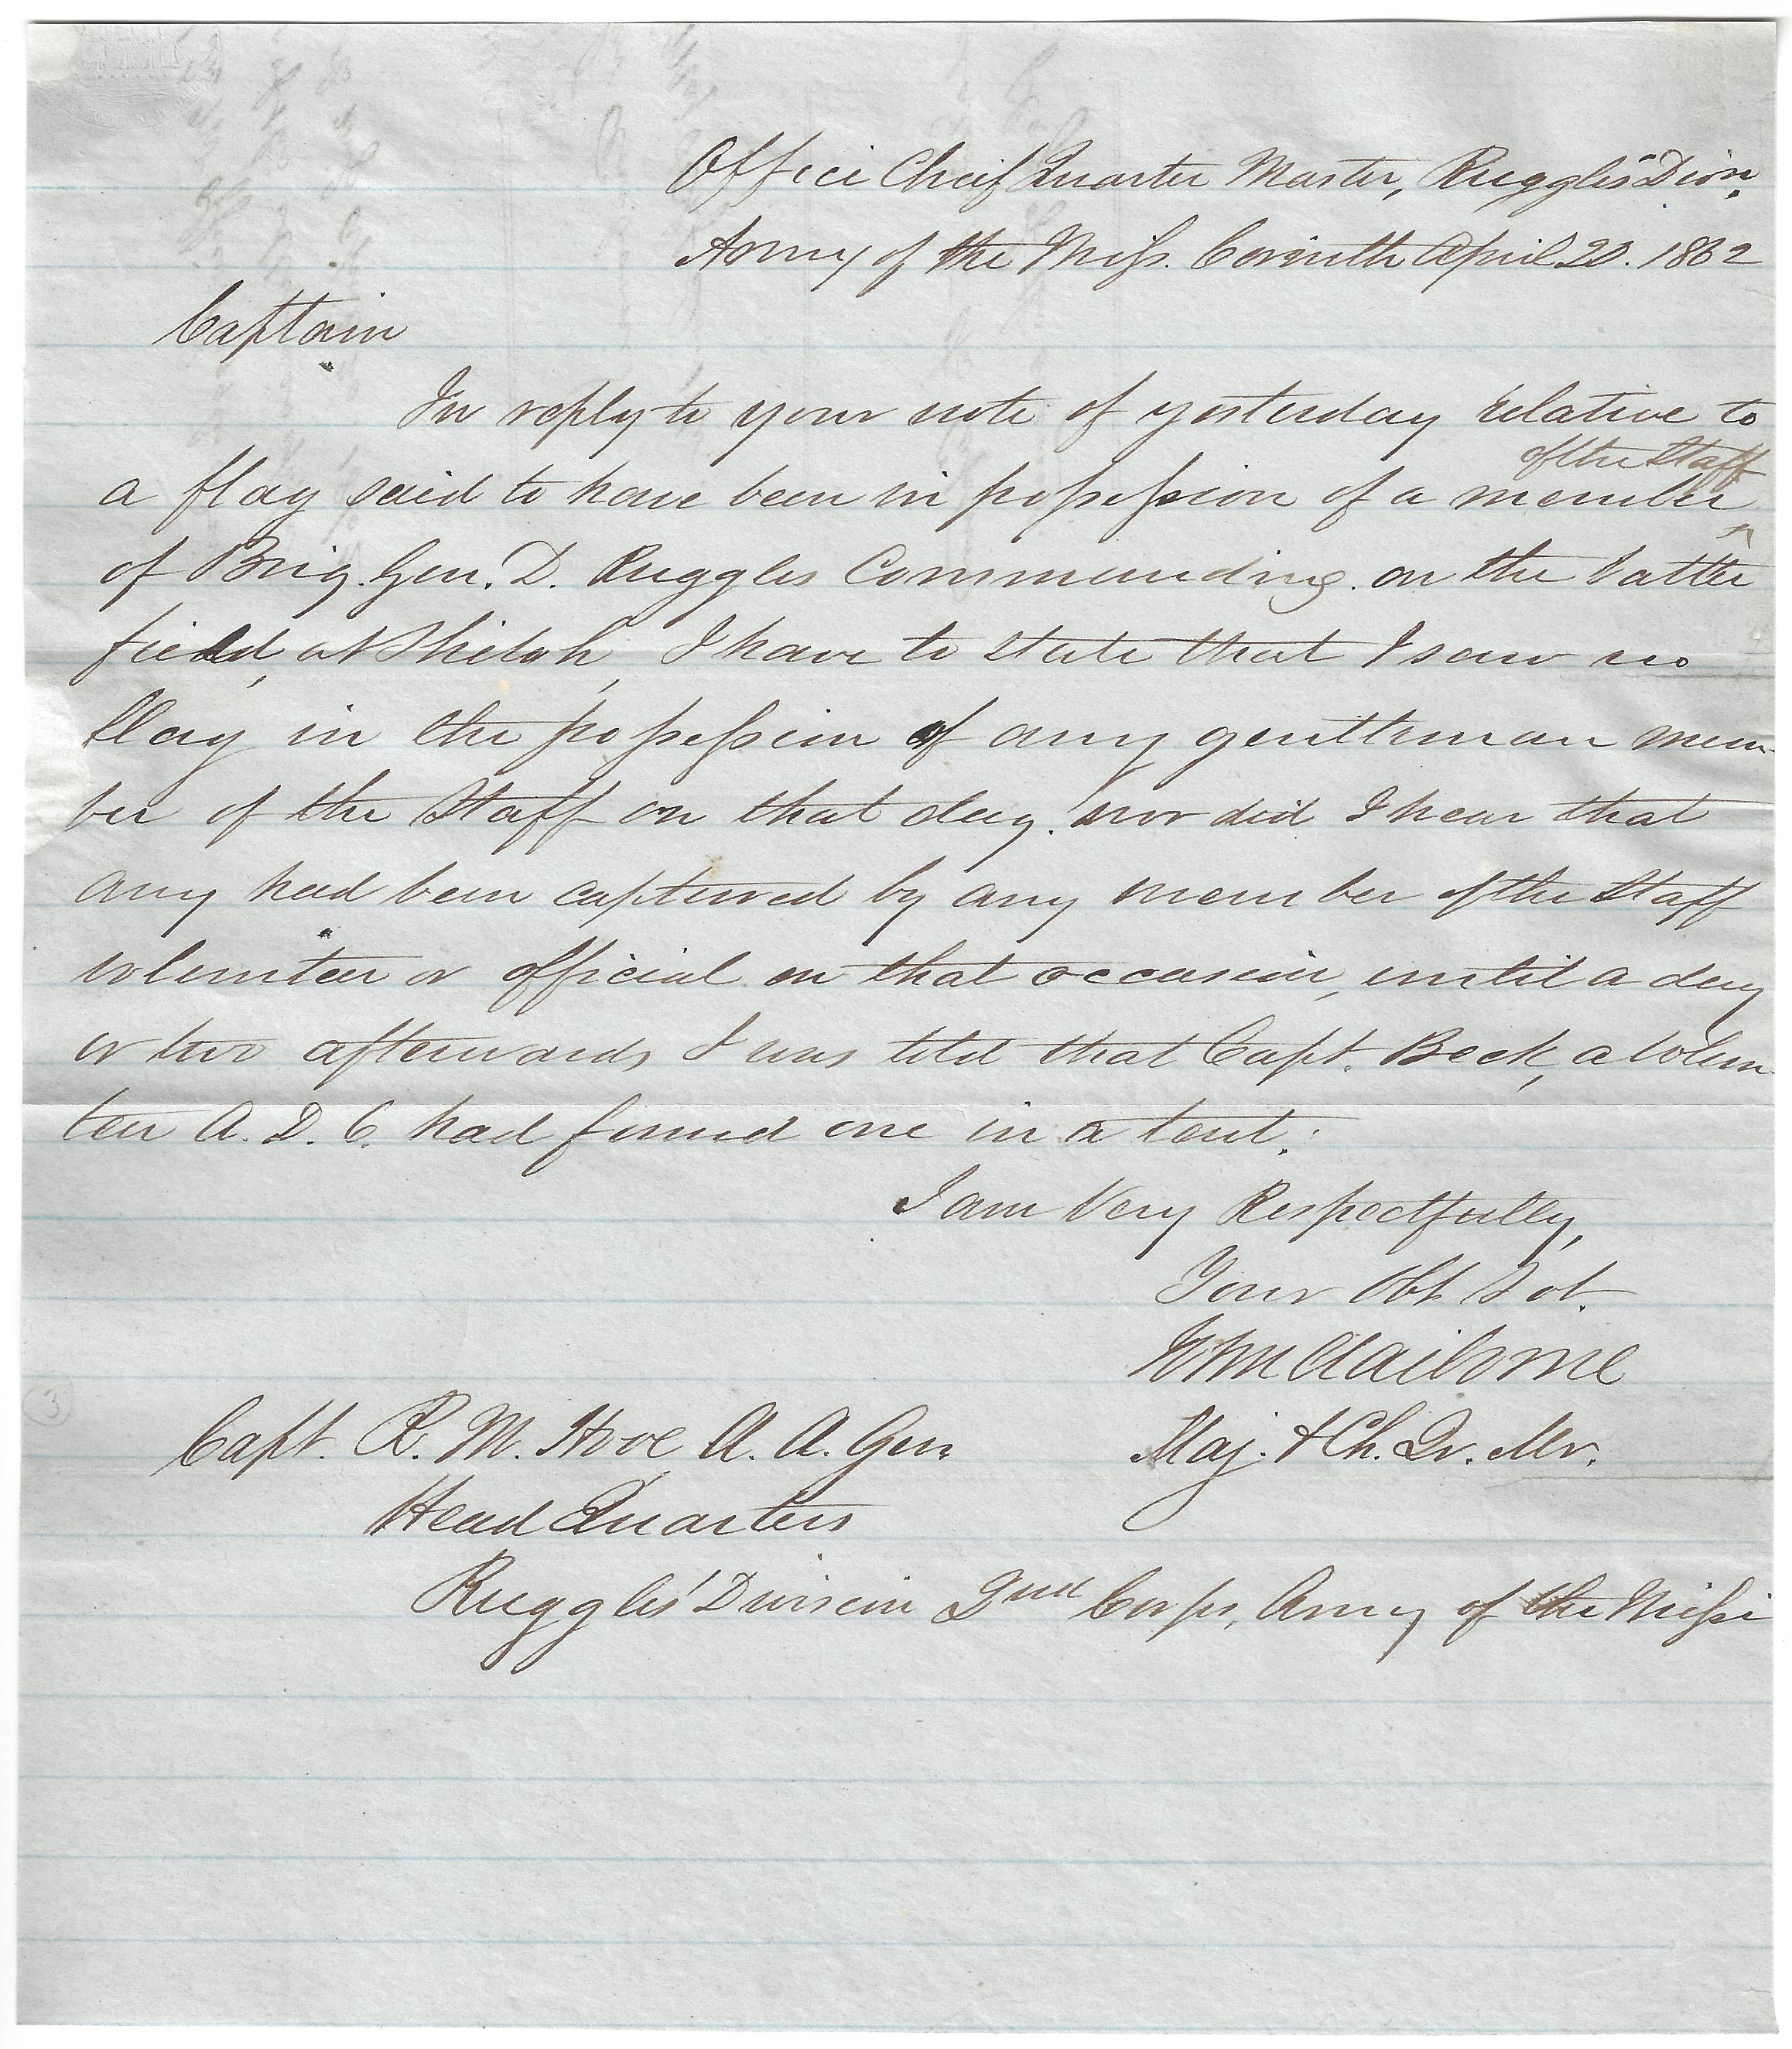 Office Cheif Quarter Master, Ruggles' Divn.
Army of the Miss. Corinth April 20. 1862
Captain
In reply to your note of yesterday relative to
of the Staff
a flag said to have been in possession of a member
of Brig. Gen. D. Ruggles Commanding. on the battle
field, at Shiloh, I have to state that I saw no
flag in the possession of any gentleman mem-
ber of the Staff on that day! nor did I hear that
any had been captured by any member of the Staff
volunteer or official on that occasion, until a day
or two afterwards, I was told that Capt. Beck, a volun-
teer A. D. C. had found one in a tent.
I am Very Respectfully,
Your Obt Svt.
Wm Claiborne
Capt. R. M. Hooe, A. A. Gen. Maj. & Ch. Qr. Mr.
Head Quarters
Ruggles' Division 2nd Corps, Army of the Missi
3